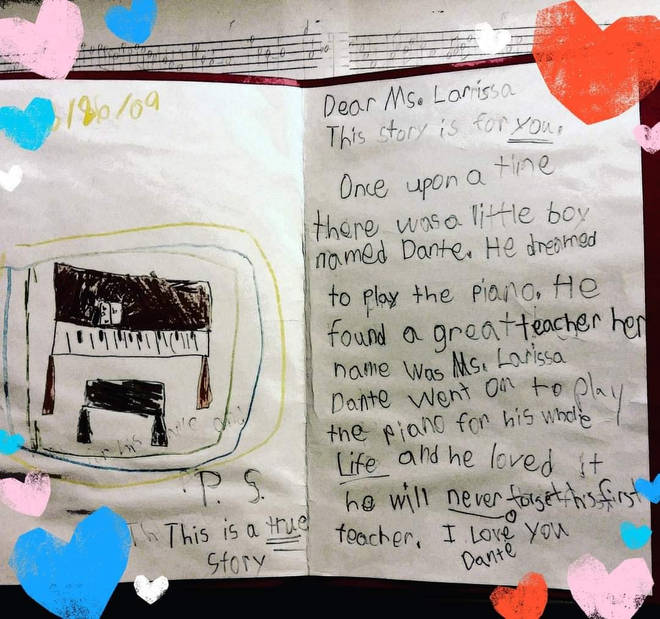 /09
P. S.
This is a true
story
Dear Ms. Larrissa
This story is for you.
Once upon a time
there was a little boy
named Dante. He dreamed
to play the piano. He
found a great teacher her
name was Ms. Larissa
Dante went on to play
the piano for his whole
Life and he loved it
he will never forget his first
teacher. I Love you
Dante